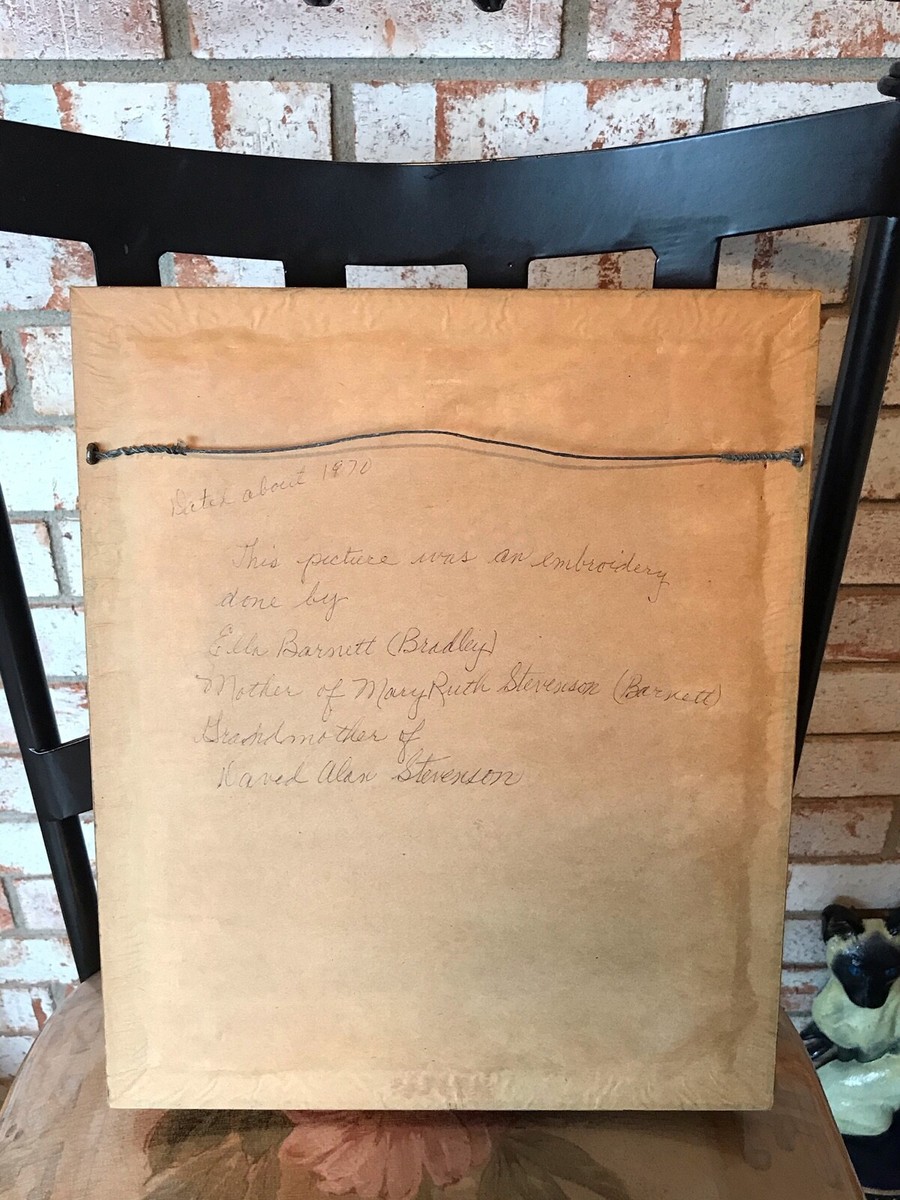 Dated about 1970
This picture was an embroidery
done by
Ella Barnett (Bradley)
Mother of Mary Ruth Stevenson (Barnett)
Grandmother of
David Alan Stevenson